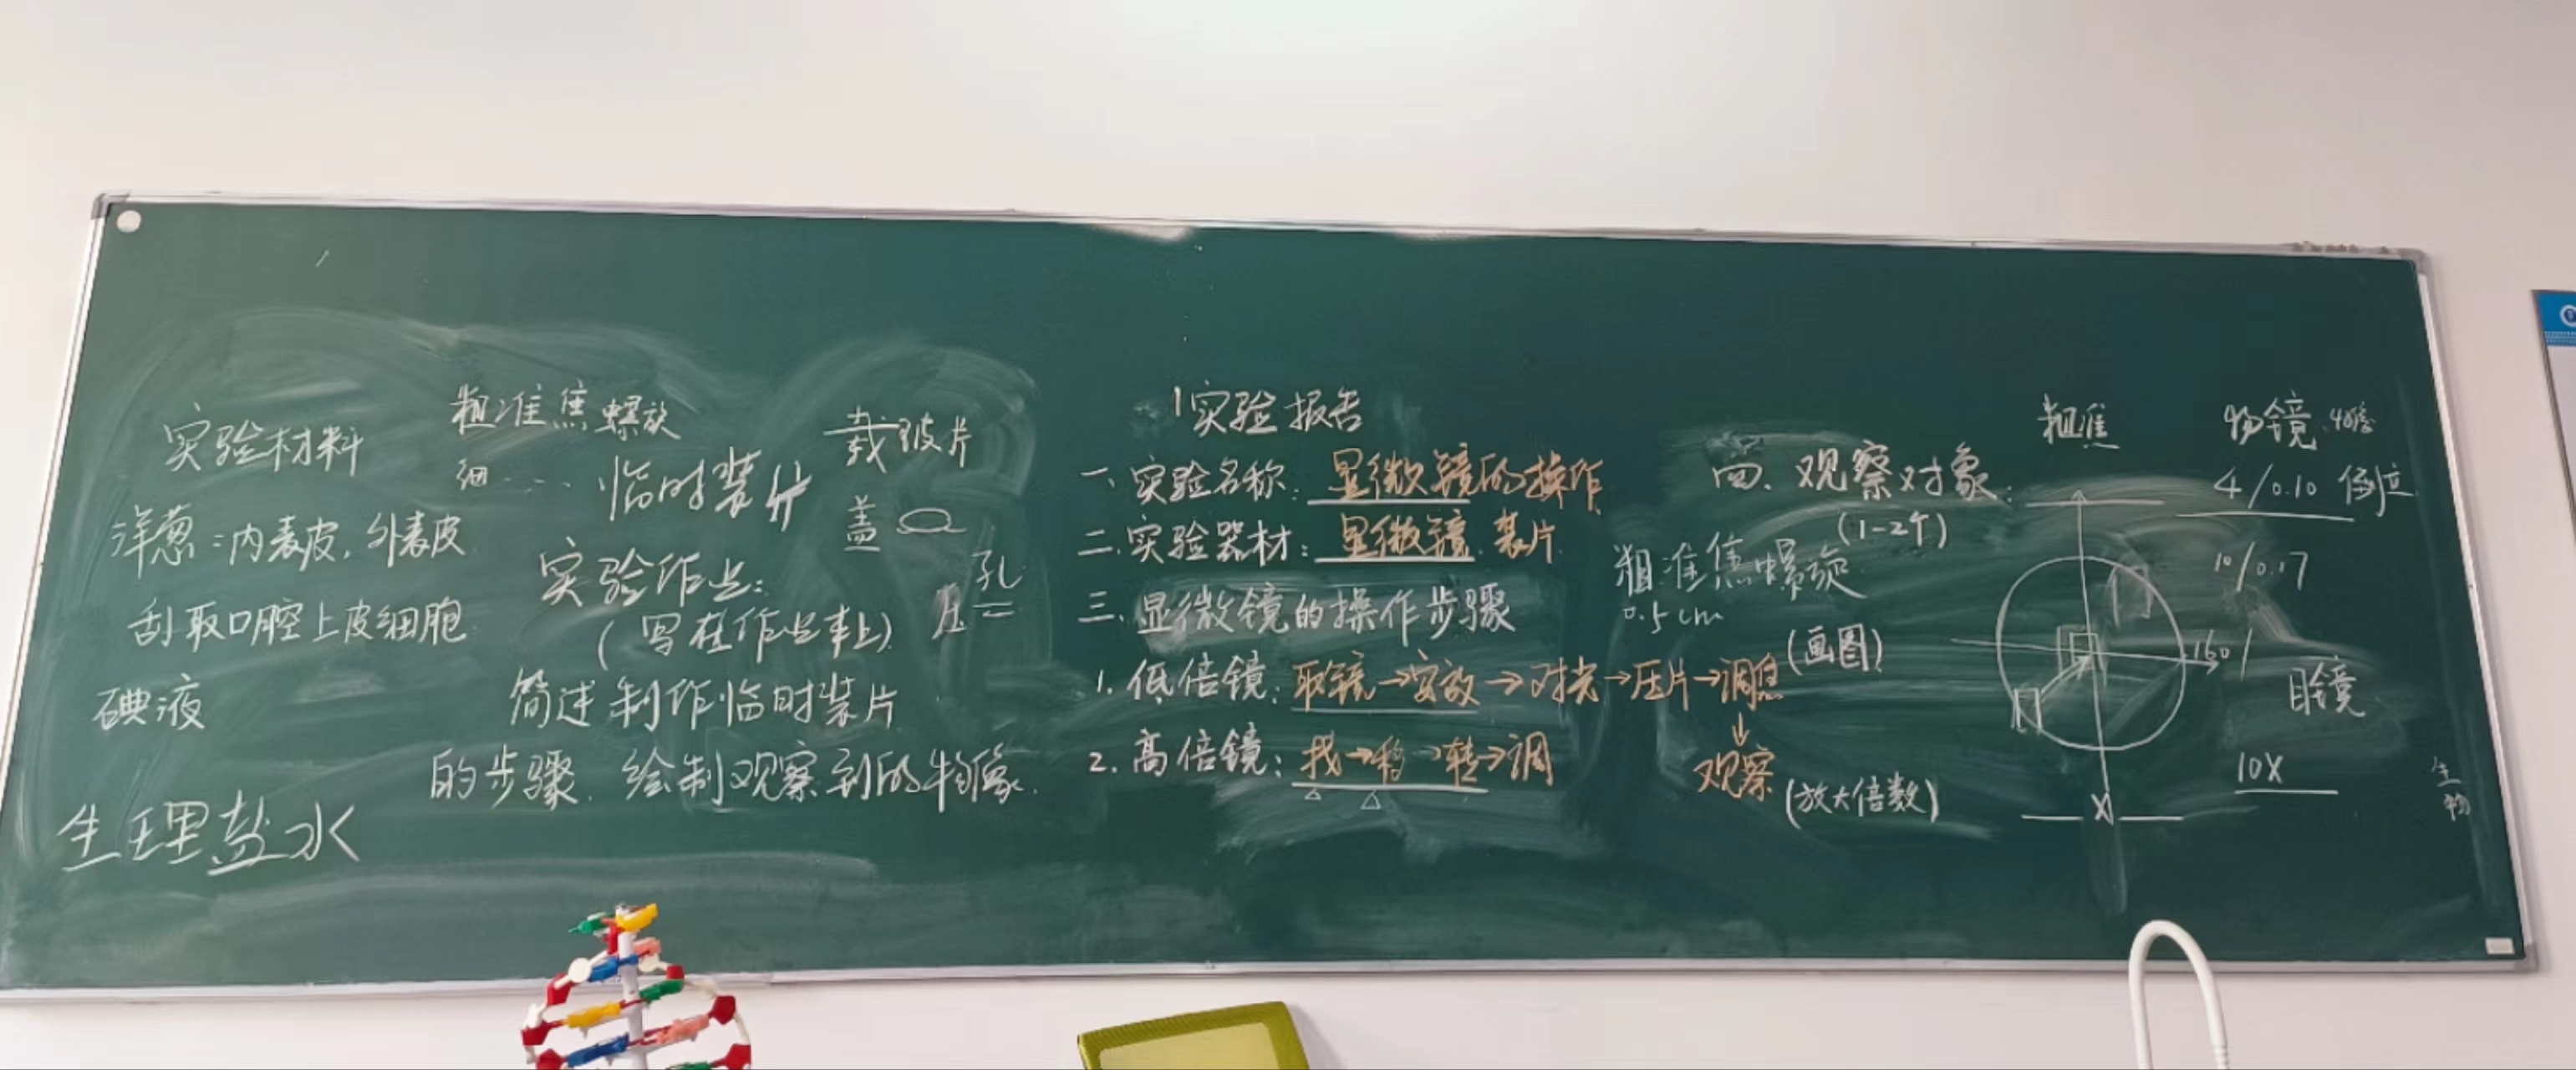 实验材料
洋葱：内表皮，外表皮
刮取口腔上皮细胞
碘液
生理盐水
粗准焦螺旋
细……
临时装片
载玻片
盖
孔
压
实验作业：
(写在作业本上)
简述制作临时装片
的步骤，绘制观察到的物像.
实验报告
一、实验名称：显微镜的操作
二、实验器材：显微镜、装片
三、显微镜的操作步骤
1. 低倍镜：取镜→安放→对光→压片→调焦
↓
观察
2. 高倍镜：找→移→转→调
四、观察对象：
(1-2个)
粗准焦螺旋
0.5cm
(画图)
(放大倍数)
粗准焦
物镜
4/0.10 倒立
10/0.17
160/
目镜
10X
生物